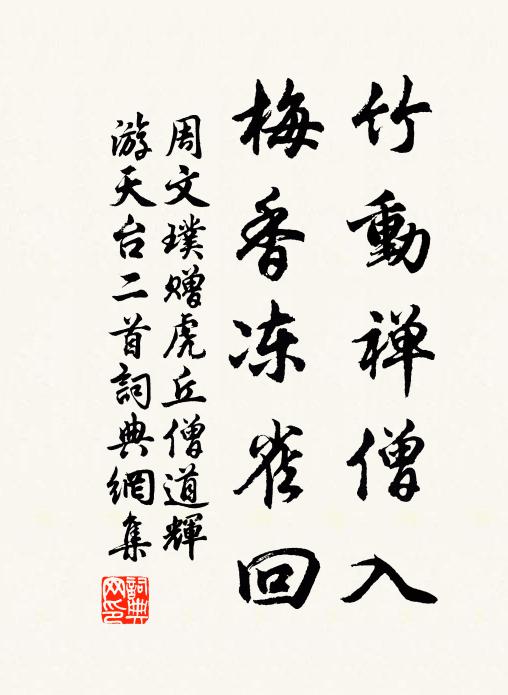 竹動禅僧入
梅香冻雀回
周文璞赠虎丘僧道輝
游天台二首詞典網集
詞典网印